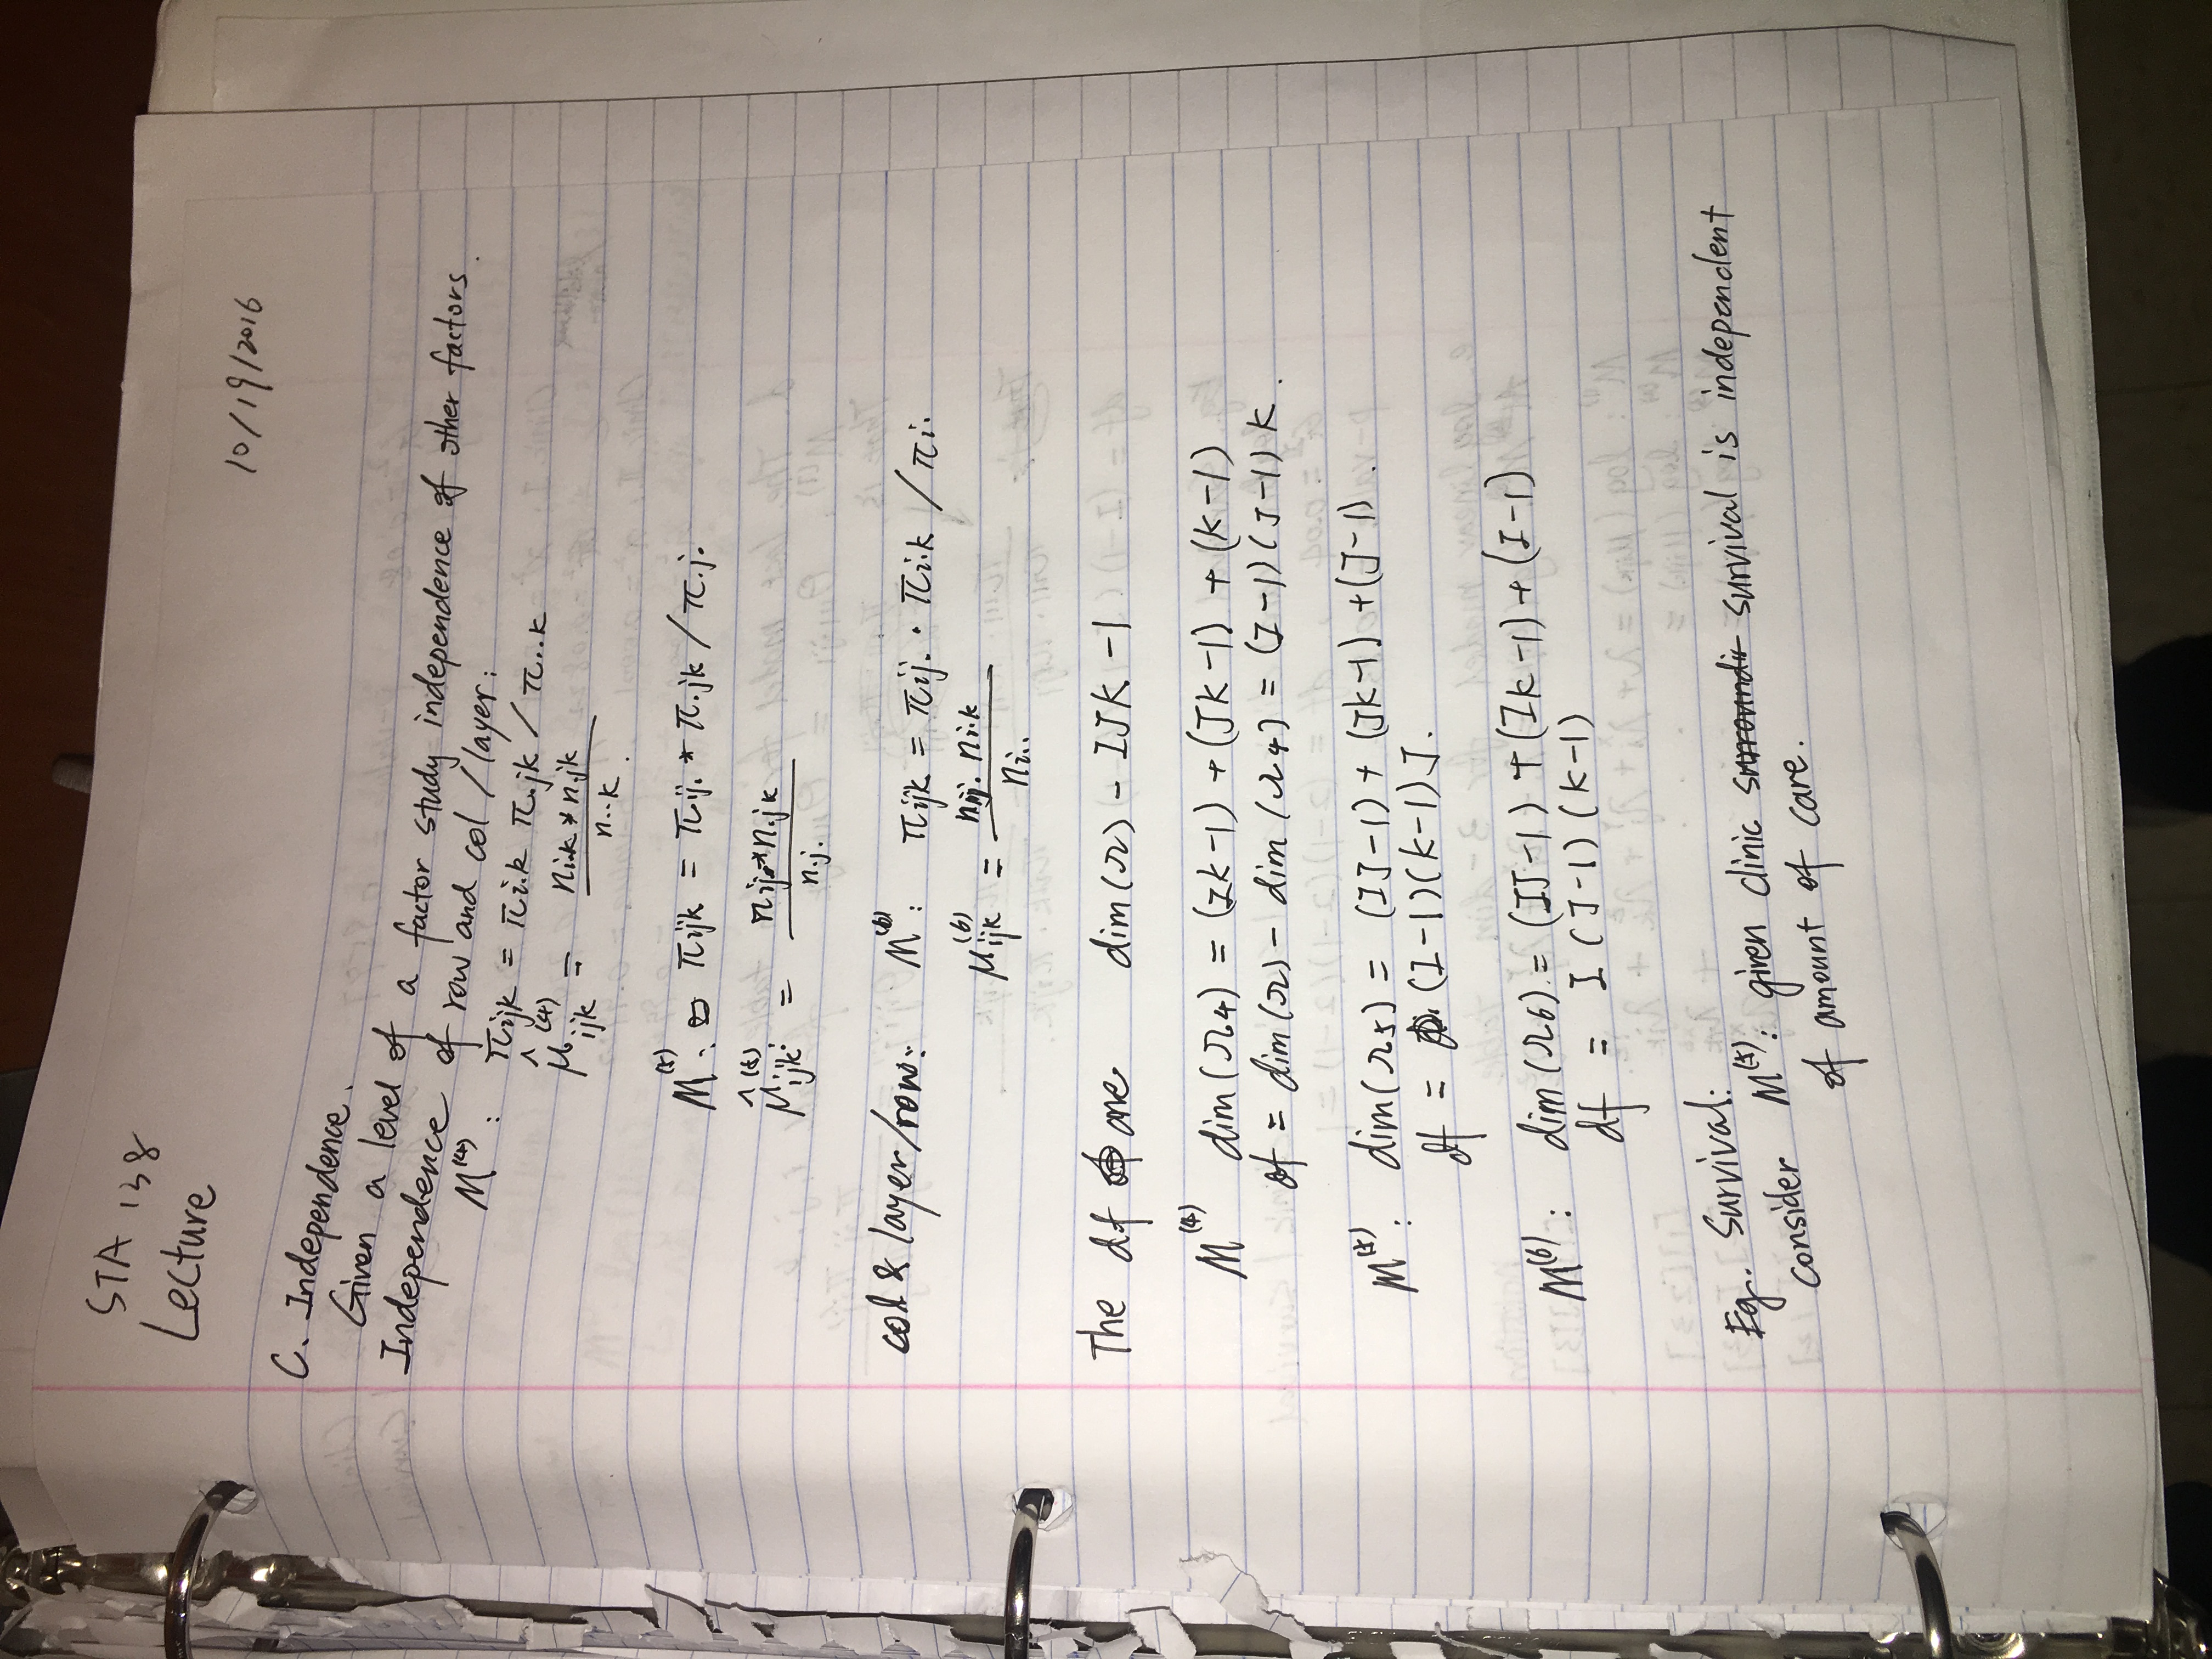 STA 138
Lecture
10/19/2016
C. Independence.
Given a level of a factor study independence of other factors.
Independence of row and col / layer:
M^(4) : π_ijk = π_i.k π_.jk / π_..k
μ̂_ijk^(4) = n_i.k * n_.jk / n_..k.
M^(5) : π_ijk = π_ij. * π_.jk / π_.j.
μ̂_ijk^(5) = n_ij. * n_.jk / n_.j.
col & layer/row: M^(6) : π_ijk = π_ij. · π_i.k / π_i.
μ_ijk^(6) = n_ij. n_i.k / n_i..
The df are dim(Ω) - IJK - 1
M^(4) dim(Ω_4) = (IK-1) + (JK-1) + (K-1)
df = dim(Ω) - dim(Ω_4) = (I-1)(J-1)K.
M^(5) : dim(Ω_5) = (IJ-1) + (JK-1) + (J-1).
df = (I-1)(K-1)J.
M^(6) : dim(Ω_6) = (IJ-1) + (IK-1) + (I-1)
df = I(J-1)(K-1)
Eg. Survival:
consider M^(5) : given clinic survival is independent
of amount of care.